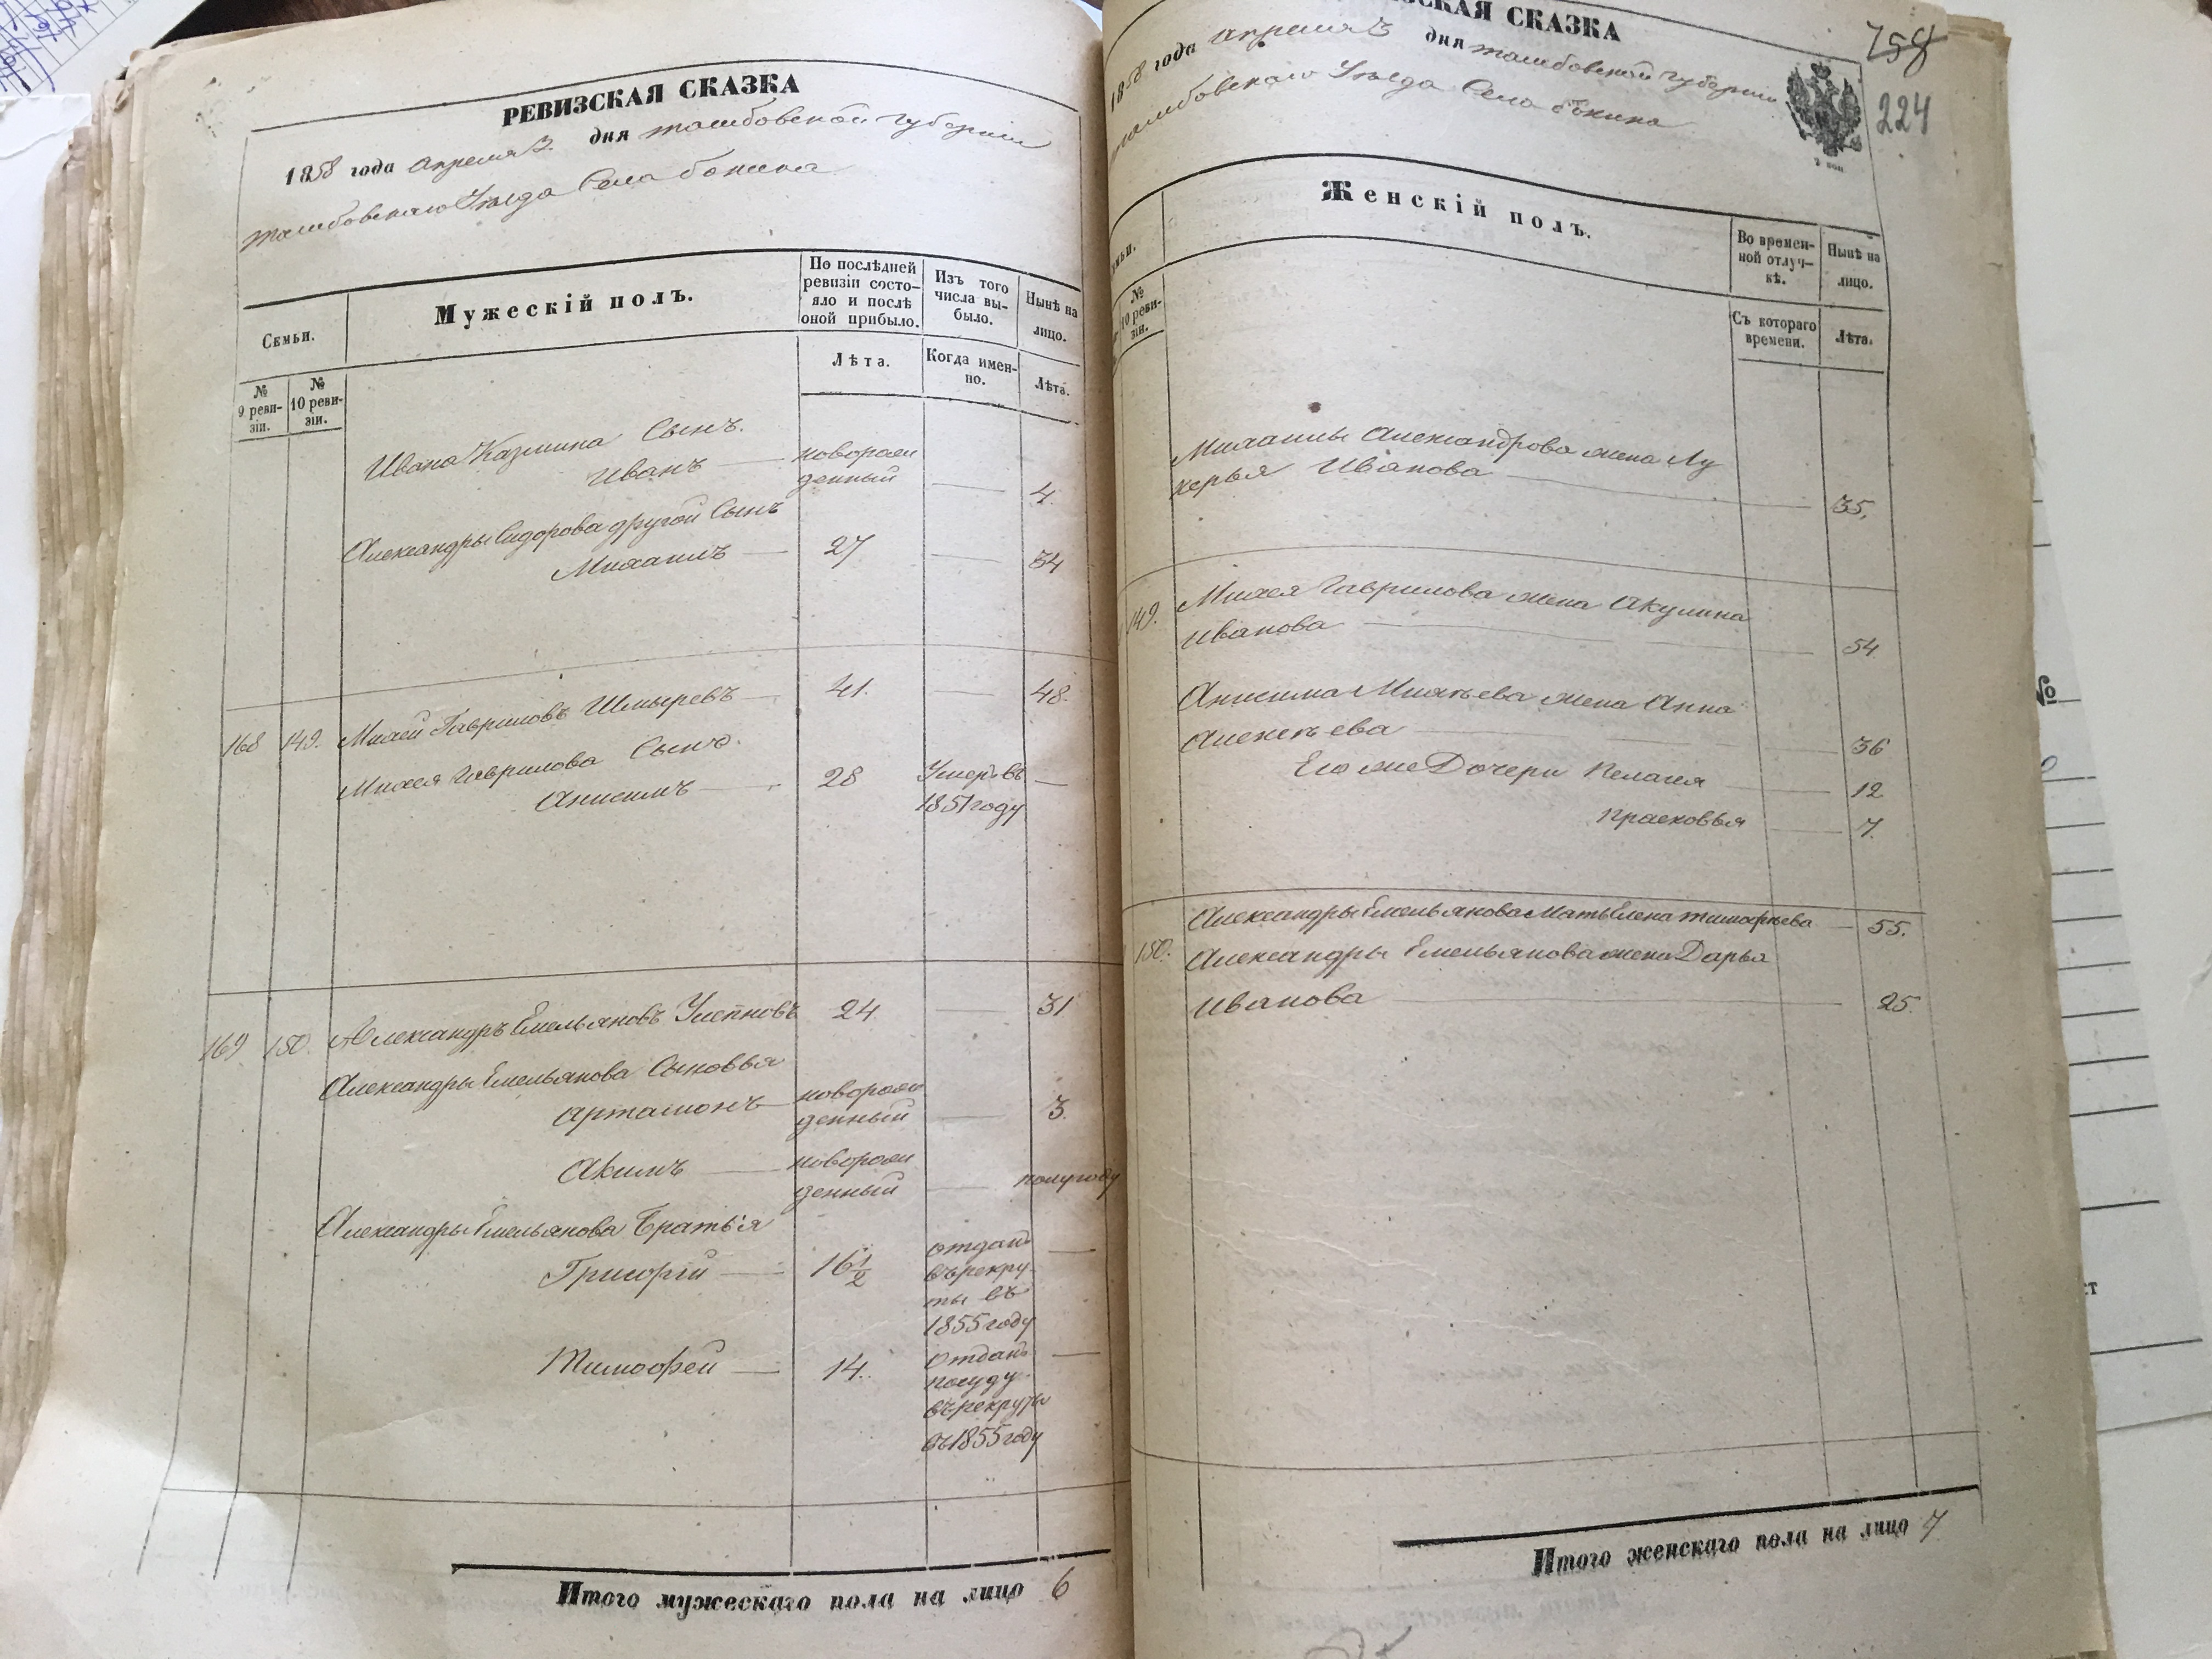 РЕВИЗСКАЯ СКАЗКА
1858 года Апреля 3 дня Тамбовской губернии
Тамбовскаго Уѣзда Села Бокина
Семьи.
Мужескій полъ.
По послѣдней ревизіи состояло и послѣ оной прибыло.
Изъ того числа выбыло.
Нынѣ на лицо.
№ 9 ревизіи.
№ 10 ревизіи.
Лѣта.
Когда именно.
Лѣта.
Ивана Казмина Сынъ.
Иванъ — новорож
денный — 4.
Александры Сидорова другой Сынъ
Михаилъ — 27 — 34
168 149. Михей Гавриловъ Шмыревъ — 41. — 48.
Михея Гаврилова Сынъ.
Анисимъ — 28 Умеръ въ —
1851 году
169 150. Александръ Емельяновъ 24 — 31
Александры Емельянова Сыновья
Артамонъ — новорож
денный — 3.
Акимъ — новорож
денный — полугоду
Александры Емельянова Братья
Григорій — 16 1/2 отданъ —
въ рекру-
ты въ
1855 году
Тимофей — 14. отданъ —
въ рекруты
въ 1855 году
Итого мужескаго пола на лицо 6
ЗСКАЯ СКАЗКА
758
224
1858 года Апреля 3 дня Тамбовской губернии
Тамбовскаго Уѣзда Села Бокина
мьи.
Женскій полъ.
Во временной отлучкѣ.
Нынѣ на лицо.
№ 10 ревизіи.
Съ котораго времени.
Лѣта.
Михаилы Александрова жена Лу
керья Иванова — 35.
149. Михея Гаврилова жена Акулина
Иванова — 54
Анисима Михѣева жена Анна
Алексѣева — 36
Его же Дочери Пелагея — 12
Прасковья — 7.
Александры Емельянова Мать Елена Тимофѣева — 55.
150. Александры Емельянова жена Дарья
Иванова — 25.
Итого женскаго пола на лицо 7
№